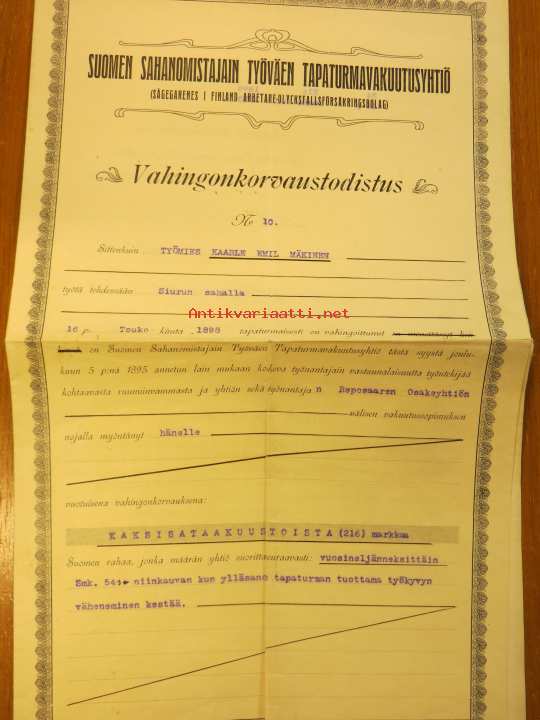 SUOMEN SAHANOMISTAJAIN TYÖVÄEN TAPATURMAVAKUUTUSYHTIÖ
(SÅGEGARENES I FINLAND ARBETARE-OLYCKSFALLSFÖRSÄKRINGSBOLAG)
Vahingonkorvaustodistus
No 10.
Sittenkuin TYÖMIES KAARLE EMIL MÄKINEN
työtä tehdessään Siurun sahalla
Antikvariaatti.net
16 p. Touko kuuta 1898 tapaturmaisesti on vahingoittunut
on Suomen Sahanomistajain Työväen Tapaturmavakuutusyhtiö tästä syystä joulu-
kuun 5 p:nä 1895 annetun lain mukaan koskeva työnantajan vastuunalaisuutta työntekijää
kohtaavasta ruumiinvammasta ja yhtiön sekä työnantaja n Reposaaren Osakeyhtiön
välisen vakuutussopimuksen
nojalla myöntänyt hänelle
vuotuisena vahingonkorvauksena:
KAKSISATAAKUUSTOISTA (216) markkaa
Suomen rahaa, jonka määrän yhtiö suorittaa seuraavasti: vuosineljänneksittäin
Smk. 54:- niinkauvan kun ylläsanotun tapaturman tuottama työkyvyn
väheneminen kestää.